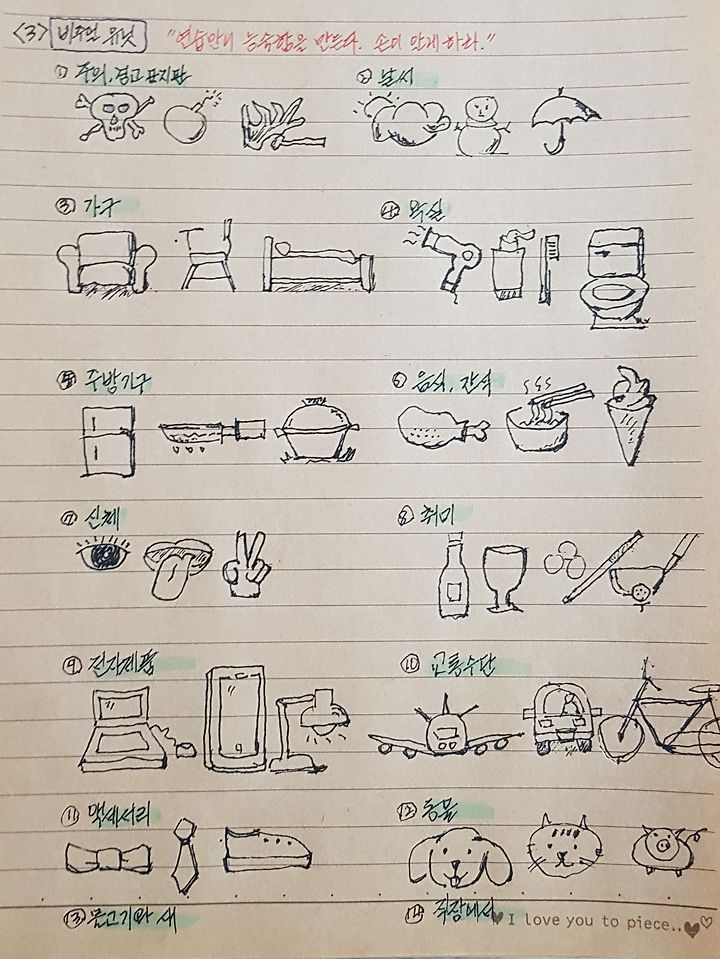 <3> 비주얼 유닛 "연습만이 능숙함을 만든다. 손이 알게 하라."
① 주의, 경고 표지판 ② 날씨
③ 가구 ④ 욕실
⑤ 주방기구 ⑥ 음식, 간식
⑦ 신체 ⑧ 취미
⑨ 전자제품 ⑩ 교통수단
⑪ 액세서리 ⑫ 동물
⑬ 물고기와 새 ⑭ 직장에서 I love you to piece..